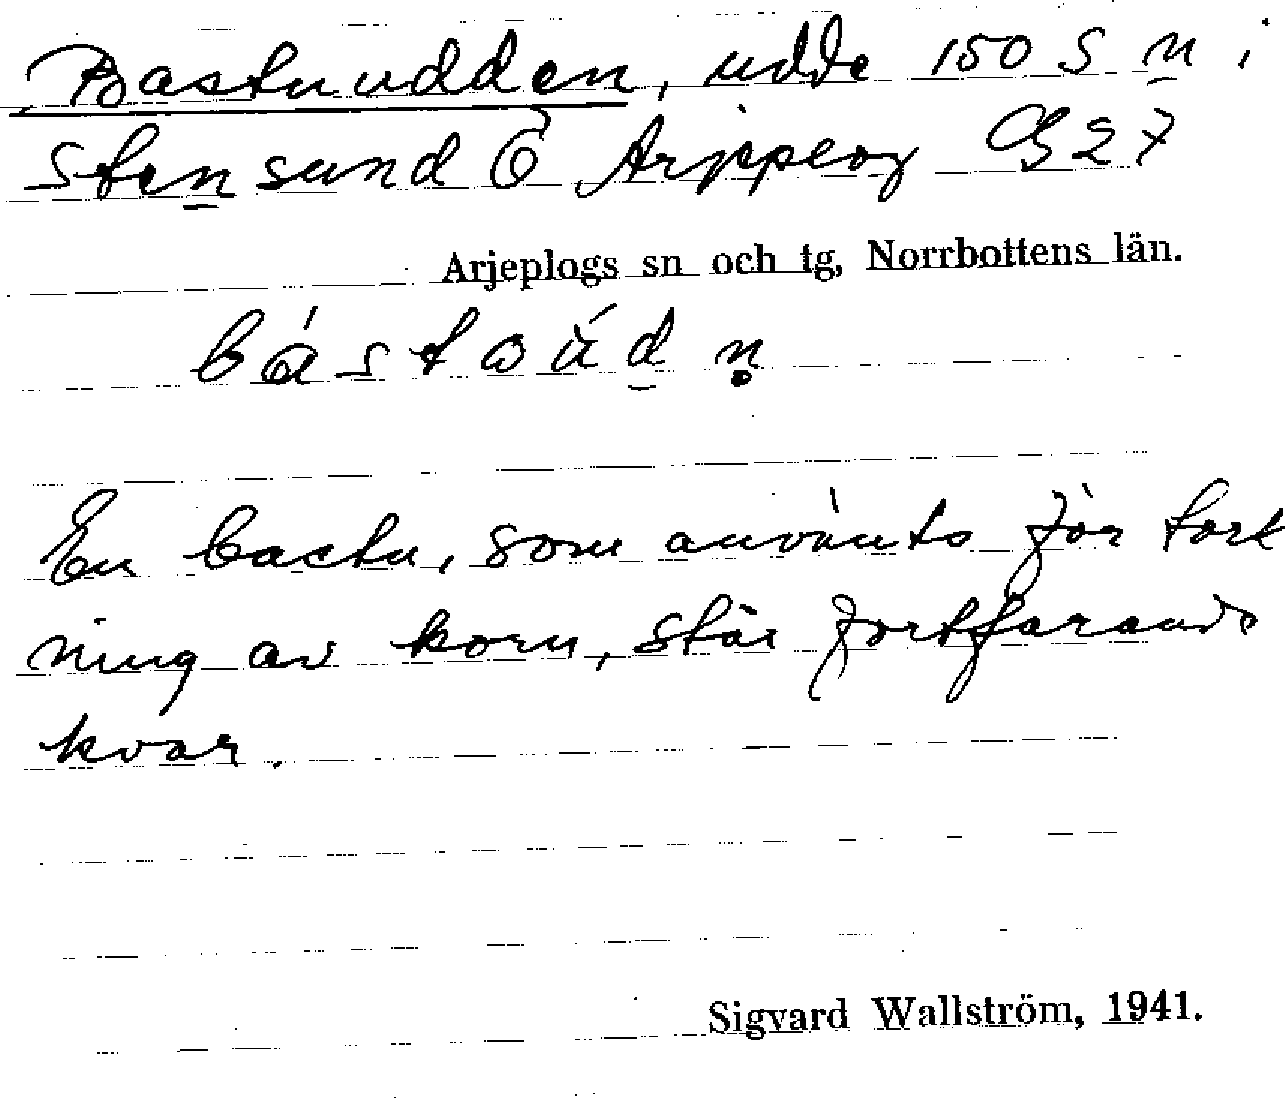 Bastuudden, udde 150 S n i
Stensund Ö Arjeplog G27
Arjeplogs sn och tg, Norrbottens län.
En bastu, som använts för tork
ning av korn, står fortfarande
kvar.
Sigvard Wallström, 1941.